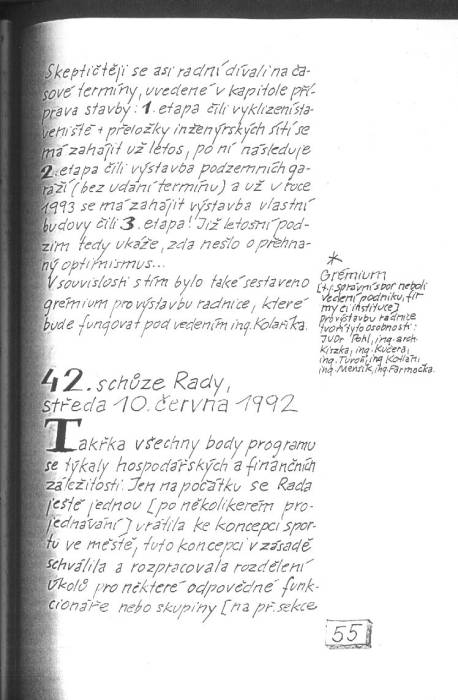 Skeptičtěji se asi radní dívali na ča-
sové termíny, uvedené v kapitole pří-
prava stavby: 1. etapa čili vyklizení sta-
veniště + přeložky inženýrských sítí se
má zahájit už letos, po ní následuje
2. etapa čili výstavba podzemních ga-
raží (bez udání termínu) a už v roce
1993 se má zahájit výstavba vlastní
budovy čili 3. etapa! Již letošní pod-
zim tedy ukáže, zda nešlo o přehna-
ný optimismus...
V souvislosti s tím bylo také sestaveno
grémium pro výstavbu radnice, které
bude fungovat pod vedením ing. Kolaříka.
*
Grémium
[tj. správní sbor neboli
vedení podniku, fir
my či instituce]
pro výstavbu radnice
tvoří tyto osobnosti:
JUDr Pohl, ing. arch.
Kirzka, ing. Kučera,
ing. Turoň, ing. Kolařík,
ing. Menšík, ing. Farmačka.
42. schůze Rady,
středa 10. června 1992
Takřka všechny body programu
se týkaly hospodářských a finančních
záležitostí. Jen na počátku se Rada
ještě jednou [po několikerém pro-
jednávání] vrátila ke koncepci spor-
tu ve městě, tuto koncepci v zásadě
schválila a rozpracovala rozdělení
úkolů pro některé odpovědné funk-
cionáře nebo skupiny [na př. sekce
55